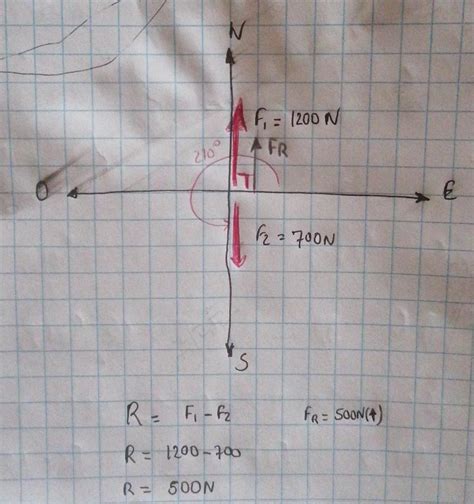 N
F₁ = 1200 N
FR
270°
O
E
F₂ = 700N
S
R = F₁ - F₂
FR = 500N(↑)
R = 1200 - 700
R = 500N